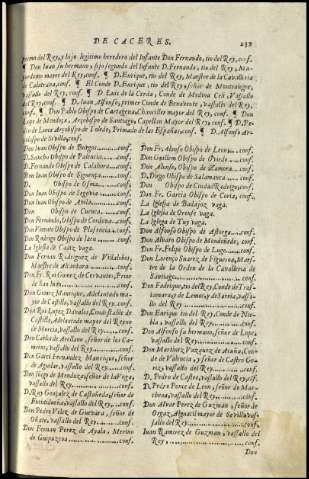 DE CACERES. 239
primo del Rey, y hijo legitimo heredero del Infante Don Fernando, tio del Rey, conf.
¶ Don Juan su hermano, hijo segundo del Infante D. Fernando, tio del Rey, Ma-
yordomo mayor del Rey, conf. ¶ D. Enrique, tio del Rey, Maestre de la Cavalleria
de Calatrava, conf. ¶ El Conde D. Enrique, tio del Rey, señor de Montealegre,
vassallo del Rey, conf. ¶ D. Luis de la Cerda, Conde de Medina Celi, Vassallo
del Rey, conf. ¶ D. Juan Alfonso, primer Conde de Benavente, vassallo del Rey,
conf. ¶ Don Pablo Obispo de Cartagena, Chanciller mayor del Rey, conf. ¶ Don
Lope de Mendoça, Arçobispo de Santiago, Capellan mayor del Rey, conf. ¶ D. Pe-
dro de Luna Arçobispo de Toledo, Primado de las Españas, conf. ¶ D. Alfonso Ar-
çobispo de Sevilla, conf.
Don Juan Obispo de Burgos conf.
D. Sancho Obispo de Palencia conf.
D. Fernando Obispo de Calahorra conf.
Don Juan Obispo de Siguença conf.
D. Obispo de Osma conf.
Don Juan Obispo de Segovia conf.
Don Juan Obispo de Avila conf.
Don Obispo de Cuenca conf.
Don Fernando, Obispo de Cordova conf.
Don Vicente Obispo de Plasencia conf.
Don Rodrigo Obispo de Jaen conf.
La Iglesia de Cadiz vaga.
Don Fernan Rodriguez de Villalobos,
Maestre de Alcantara conf.
Don Fr. Rui Gomez de Cervantes, Prior
de San Juan conf.
Don Gomez Manrique, Adelantado ma-
yor de Castilla, vassallo del Rey, conf.
Don Rui Lopez Davalos, Condestable de
Castilla, Adelantado mayor del Reyno
de Murcia, vassallo del Rey, conf.
Don Carlos de Arellano señor de los Ca-
meros, vassallo del Rey, conf.
Don Garci Fernandez Manrique, señor
de Aguilar, vassallo del Rey, conf.
Don Iñigo de Mendoça señor de la Vega,
vassallo del Rey conf.
D. Rey Gonçalez de Castañeda, señor de
Fuentidueña, vassallo del Rey, conf.
Don Pedro Velez de Guevara, señor de
Oñate, vassallo del Rey conf.
Don Fernan Perez de Ayala, Merino
de Guipuzcoa conf.
Don Fr. Alonso Obispo de Leon conf.
Don Guillen Obispo de Oviedo conf.
Don Alonso, Obispo de Zamora conf.
D. Diego Obispo de Salamanca conf.
Don Obispo de Ciudad Rodrigo conf.
Don Fr. Garcia Obispo de Coria, conf.
La Iglesia de Badajoz vaga.
La Iglesia de Orense vaga.
La Iglesia de Tuy vaga.
Don Alfonso Obispo de Astorga conf.
Don Alvaro Obispo de Mondoñedo, conf.
Don Fr. Felipe Obispo de Lugo conf.
Don Lorenço Suarez de Figueroa, Maes-
tre de la Orden de la Cavalleria de
Santiago conf.
Don Fadrique, tio del Rey, Conde de Tras-
tamara, y de Lemos, y de Sarria, vassa-
llo del Rey conf.
Don Enrique tio del Rey, Conde de Nie-
bla, vassallo del Rey conf.
Don Alfonso su hermano, señor de Lepe,
vassallo del Rey conf.
Don Martin Vazquez de Acuña, Con-
de de Valencia, y señor de Castro Go-
riz, vassallo del Rey conf.
D. Pedro de Castro, vassallo del Rey, conf.
D. Pedro Ponce de Leon, señor de Mar-
chena, vassallo del Rey conf.
Don Alvar Perez de Guzman, señor de
Orgaz, Alguacil mayor de Sevilla, va-
ssallo del Rey conf.
Juan Ramirez de Guzman, vassallo del
Rey conf.
Don